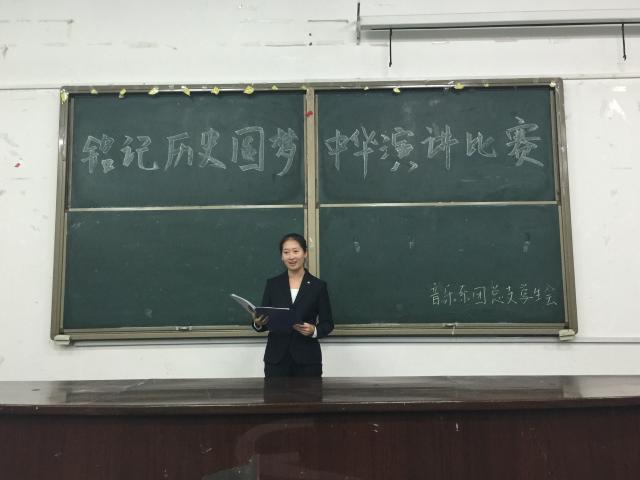 铭记历史圆梦中华演讲比赛
音乐系团总支学生会